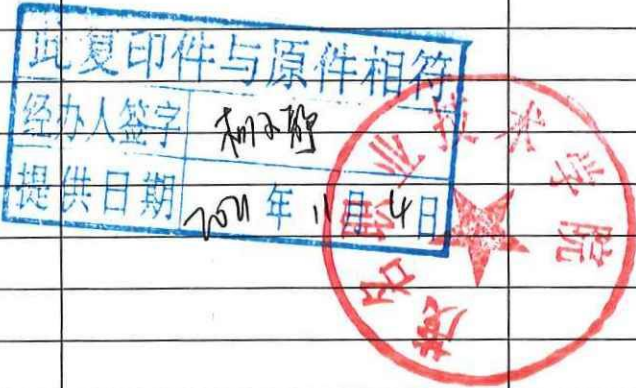 此复印件与原件相符
经办人签字
提供日期 2021年11月4日
黄冈职业技术学院